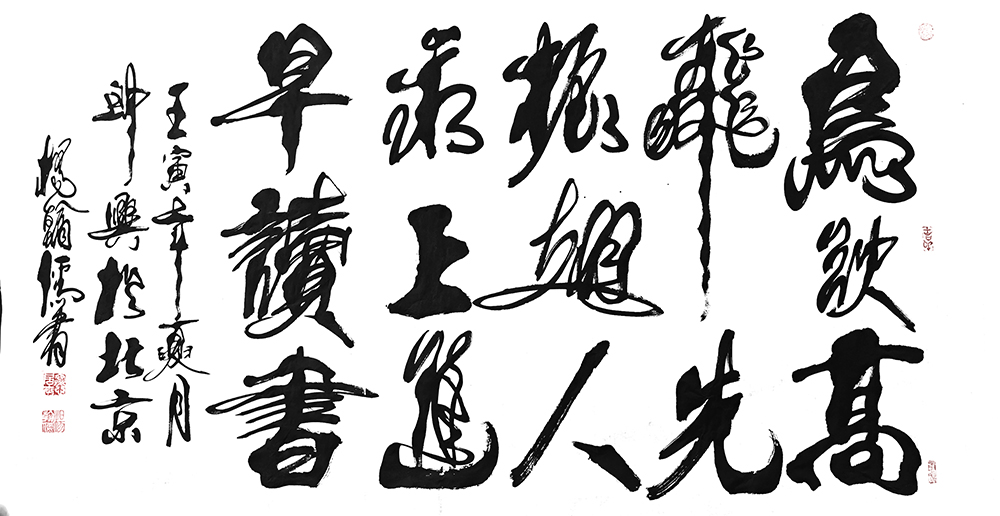 鳥欲高
飛先
振翅人
求上進
早讀書
壬寅年夏月
即興於北京
楊翰儒書